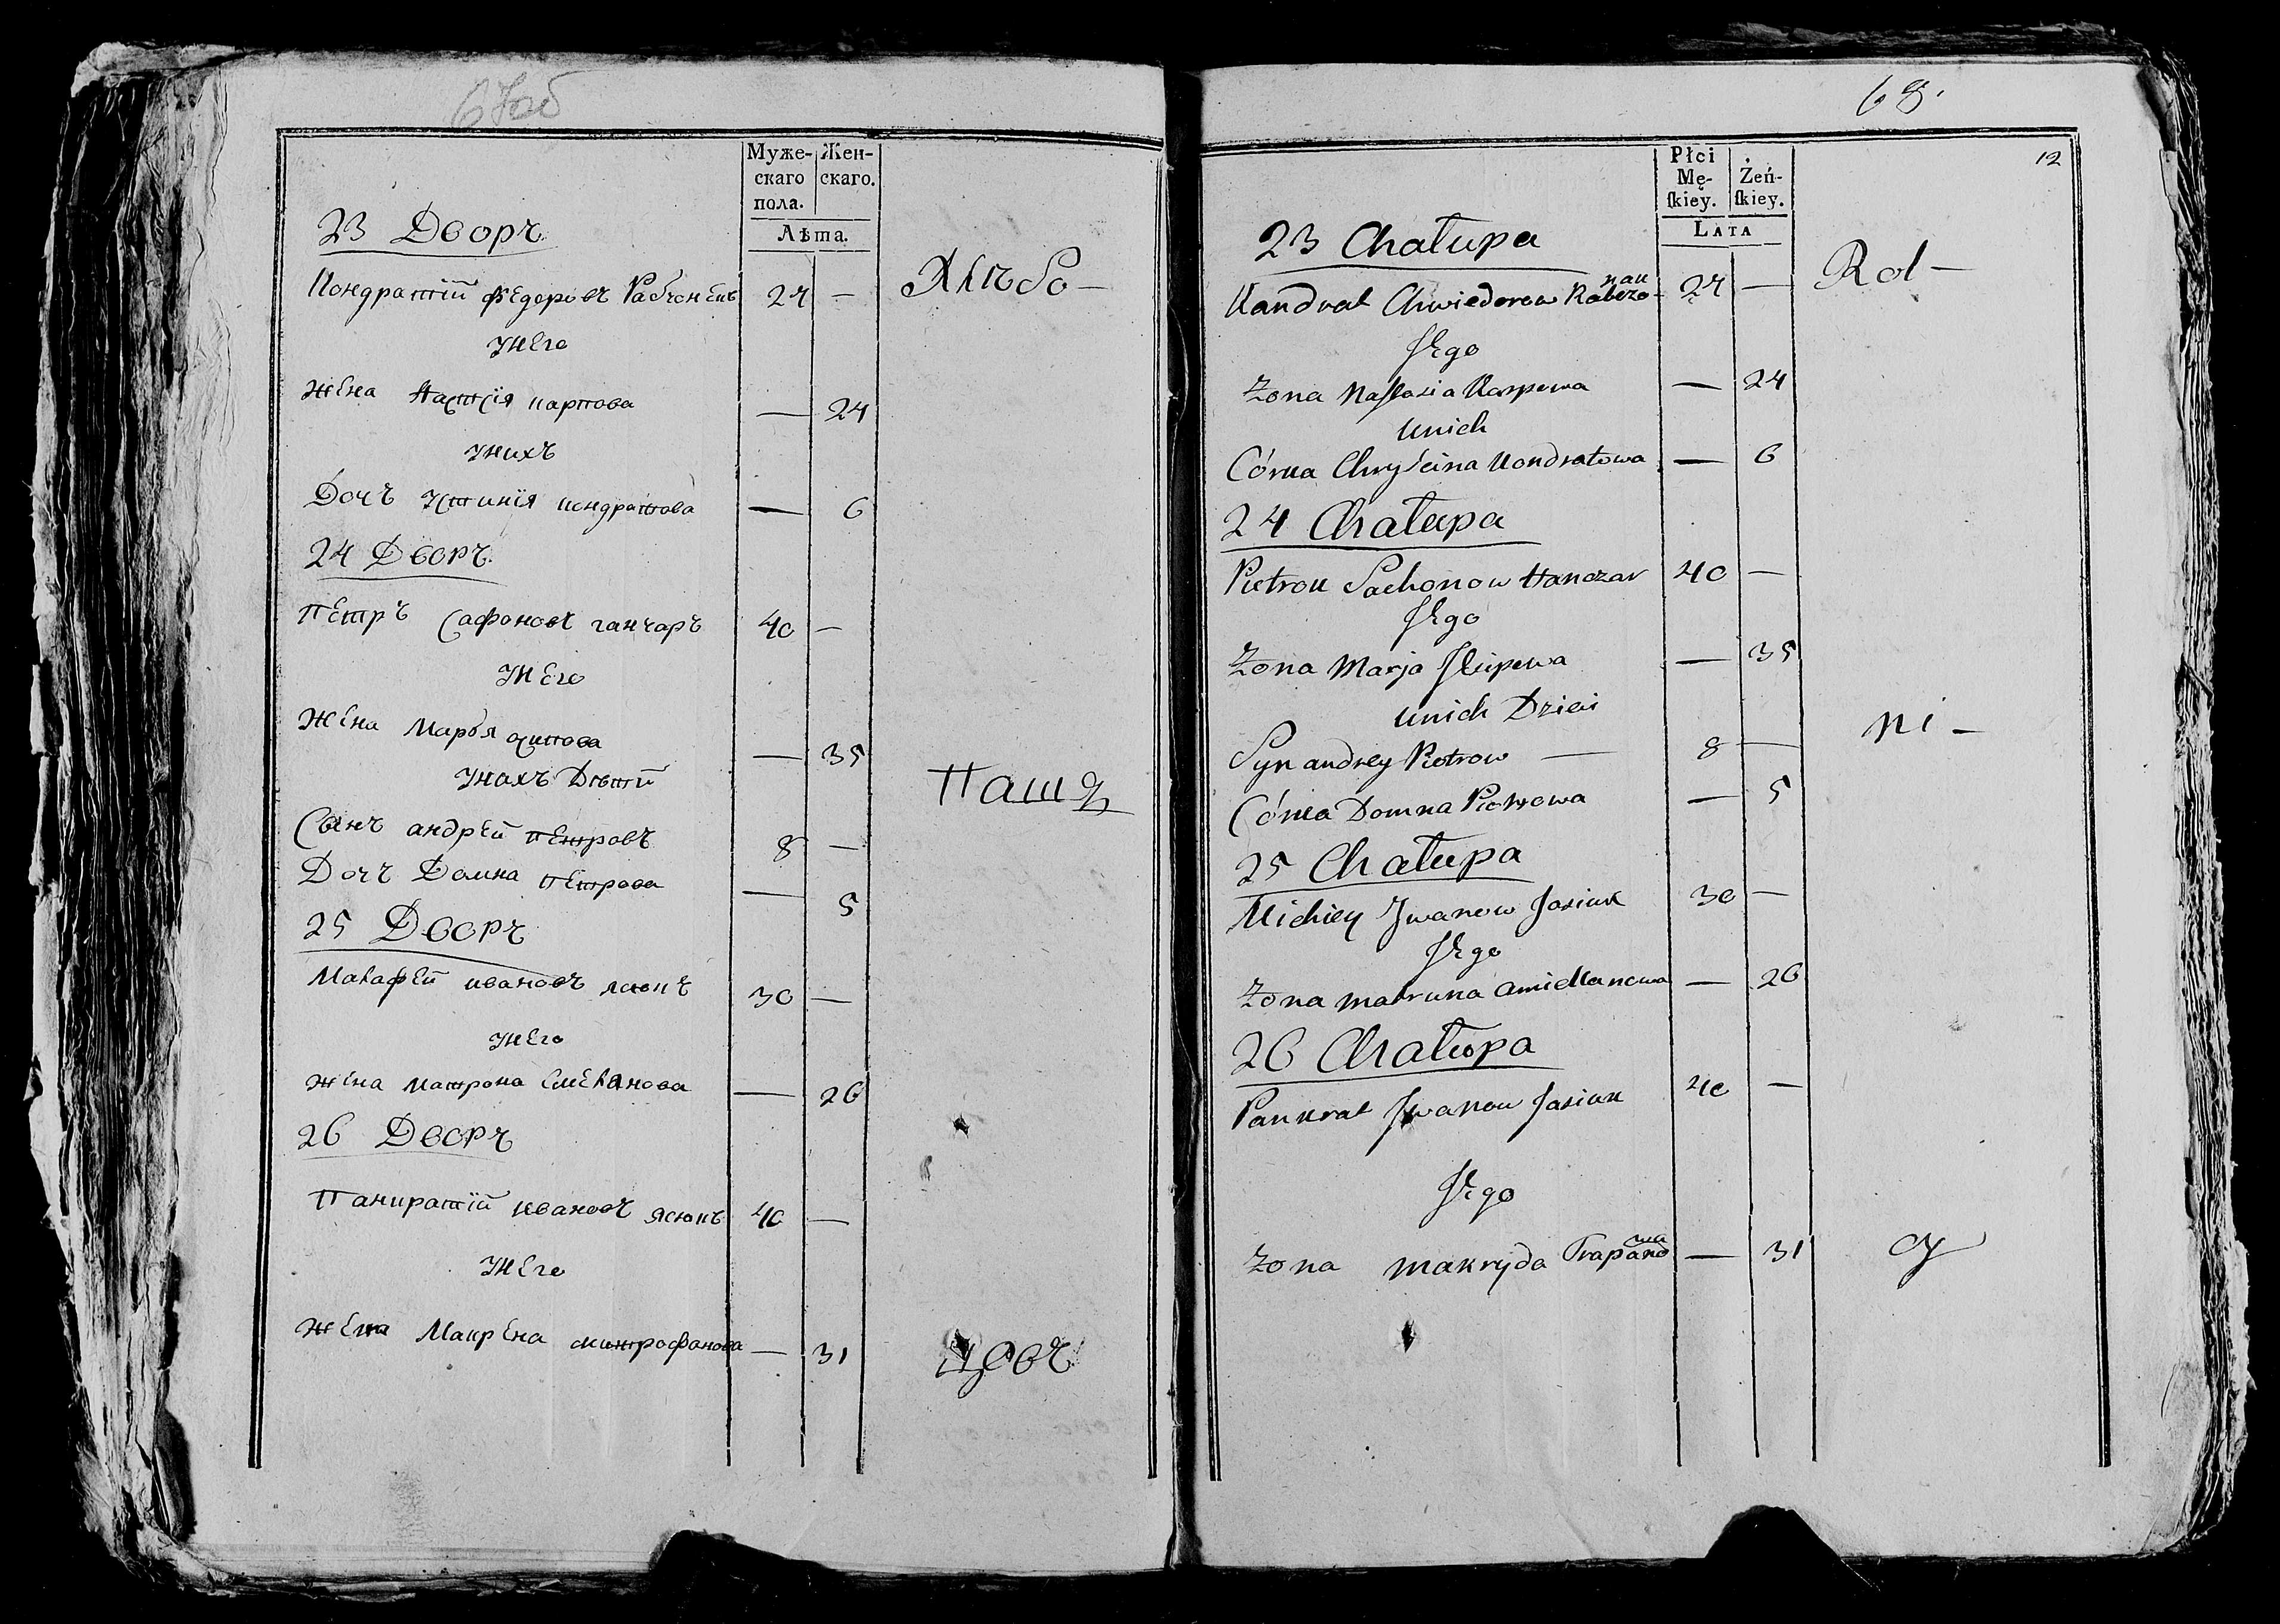 67об
Муже-
скаго
пола.
Жен-
скаго.
Лѣта.
23 Дворъ
Кондратій Федоровъ Рабчонекъ 24 —
Хлѣбо-
У Него
Жена Настсія карпова — 24
У нихъ
Дочъ Устинія кондратова — 6
24 Дворъ
Петръ Сафоновъ ганчаръ 40 —
У Него
Жена Марья осипова — 35
У нахъ Дѣти
Пашц
Сынъ андрей петровъ 8 —
Дочъ Домна петрова — 5
25 Дворъ
Макафей ивановъ ясюкъ 30 —
У Него
жена матрона Емельянова — 26
26 Дворъ
Панкратій ивановъ ясюкъ 40 —
У Него
Жена Макрена митрофанова — 31
цовъ
68.
12
Płci
Mę-
skiey.
Żeń-
skiey.
LATA
23 Chałupa
Kandrat Chwiederow Rabczo- 24 —
nak
Rol —
Jego
Zona Nastasia Karpowa — 24
Unich
Córka Chryścina Kondratowa — 6
24 Chałupa
Pietrok Sachonow Hanczar 40 —
Jego
Zona Marja Jsupowa — 35
Unich Dzieci
ni —
Syn andrey Piotrow — 8 —
Córka Domna Piotrowa — 5
25 Chałupa
Michiey Jwanow Jasiuk 30 —
Jego
Zona matruna amiellanowa — 26
26 Chałupa
Pankrat Jwanow Jasiuk 40 —
Jego
Zona makryda Trapano — 31
wa
cy